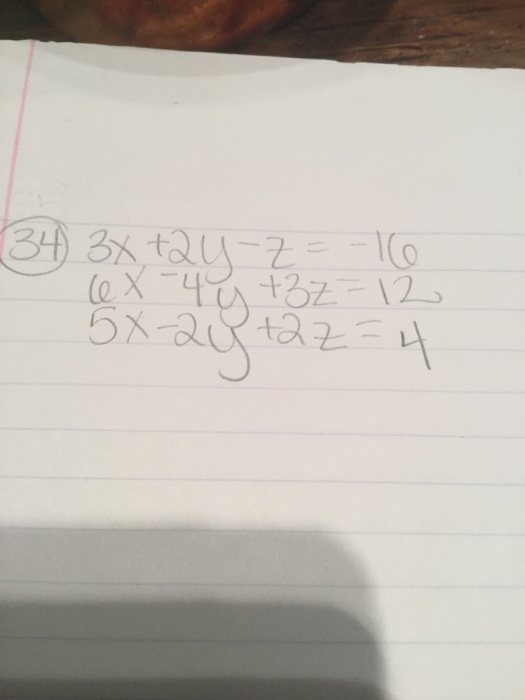 34 3x+2y-z=-16
6x-4y+3z=12
5x-2y+2z=4